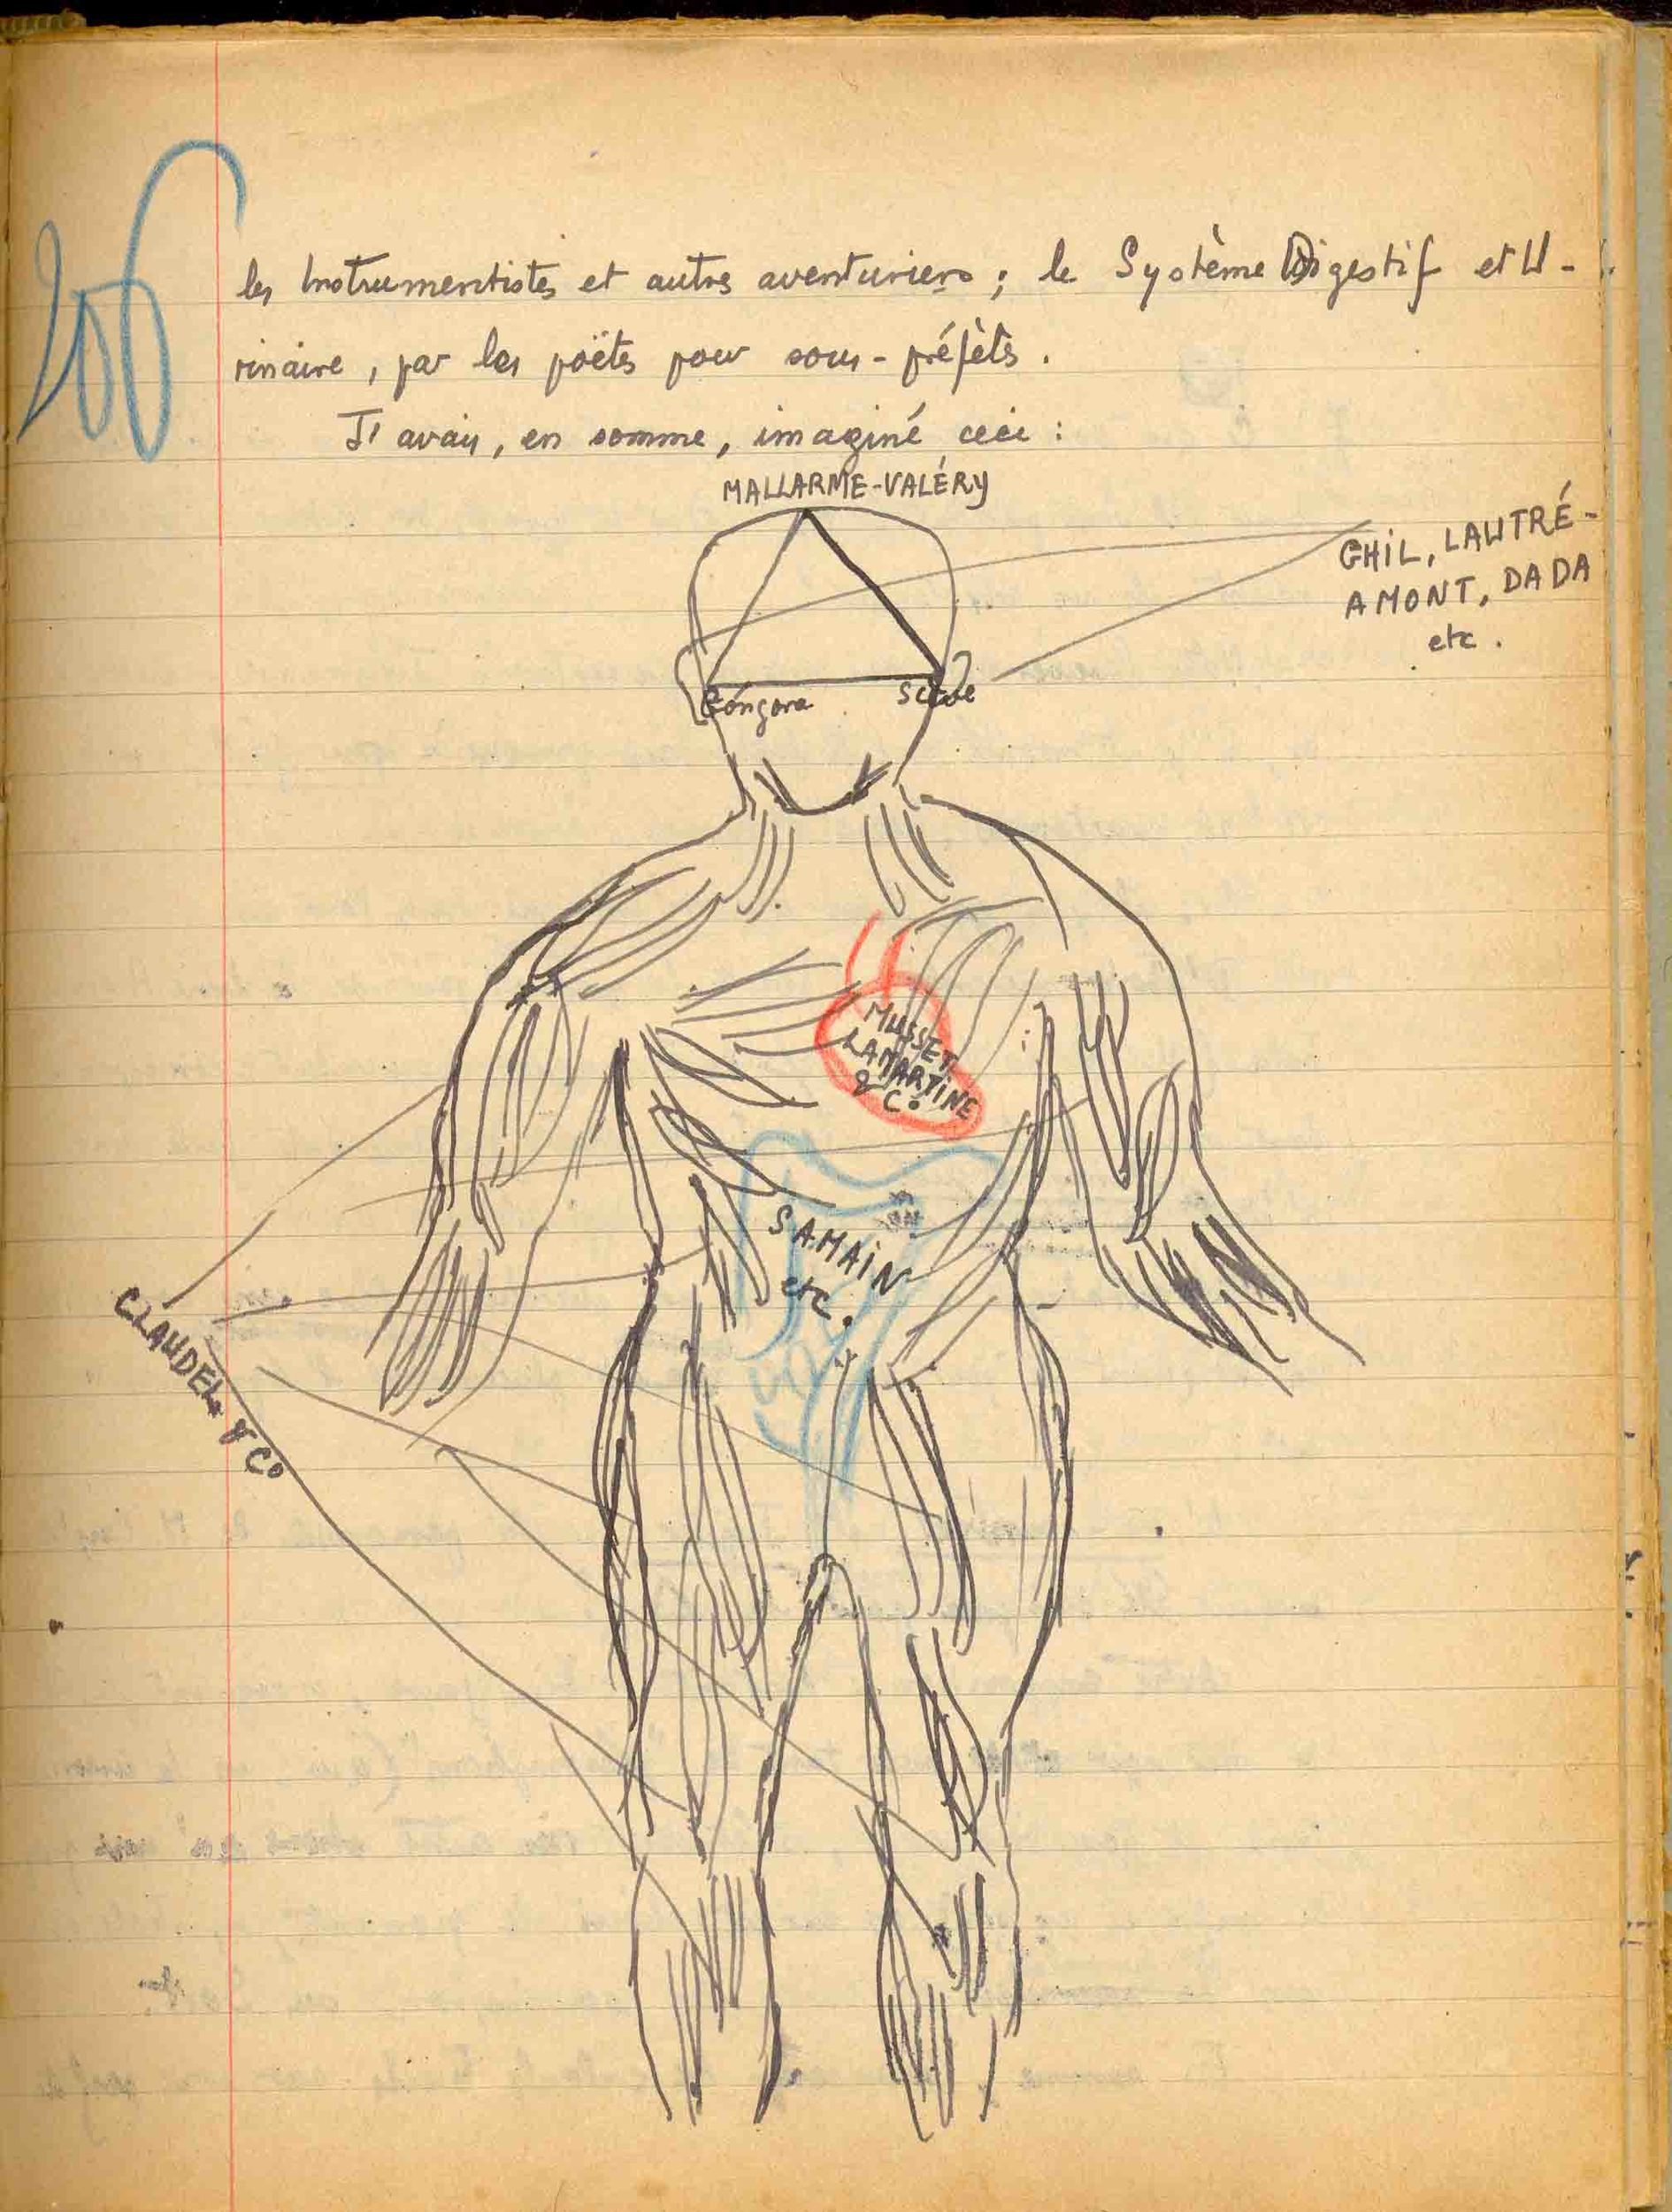 206
les Instrumentistes et autres aventuriers ; le Système Digestif et U-
rinaire, par les poëtes pour sous-préfets.
J'avais, en somme, imaginé ceci :
MALLARMÉ-VALÉRY
GHIL, LAUTRÉ-
AMONT, DADA
etc.
Góngora Scève
MUSSET
LAMARTINE
& Cº
SAMAIN
etc.
CLAUDEL & Cº